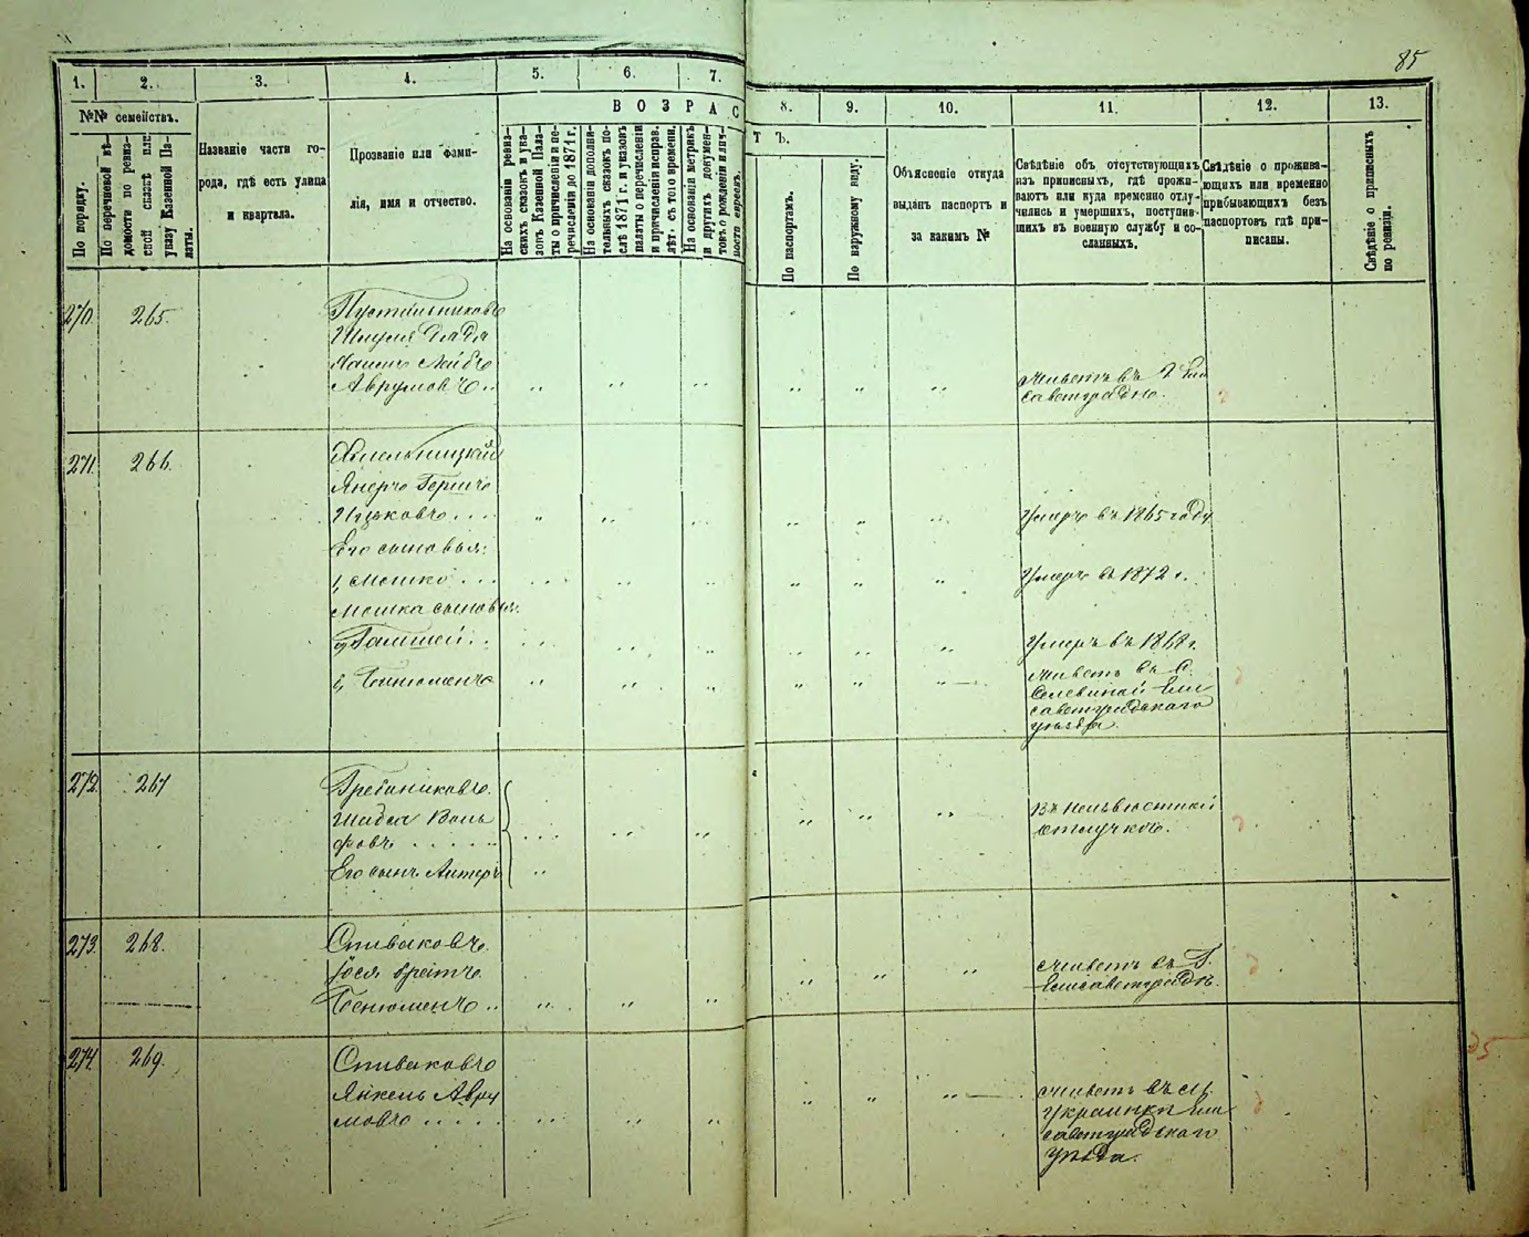 85
1. 2. 3. 4. 5. 6. 7. 8. 9. 10. 11. 12. 13.
№№ семействъ.
По порядку.
По перечневой вѣ-
домости по ревиз-
ской сказкѣ или
указу Казенной Па-
латы.
Названіе части го-
рода, гдѣ есть улица
и квартала.
Прозваніе или фами-
лія, имя и отчество.
ВОЗРАСТЪ.
На основаніи ревиз-
скихъ сказокъ и ука-
зовъ Казенной Пала-
ты о причисленіи и пе-
речисленіи до 1871 г.
На основаніи дополни-
тельныхъ сказокъ по-
слѣ 1871 г. и указовъ
палаты о перечисленіи
и причисленіи исправ.
лѣт. съ того времени.
На основаніи метрикъ
и другихъ докумен-
товъ о рожденіи лич-
ности евреевъ.
По паспортамъ.
По наружному виду.
Объясненіе откуда
выданъ паспортъ и
за какимъ №
Свѣдѣніе объ отсутствующихъ
изъ приписныхъ, гдѣ прожи-
ваютъ или куда временно отлу-
чились и умершихъ, поступив-
шихъ въ военную службу и со-
сланныхъ.
Свѣдѣніе о прожива-
ющихъ или временно
прибывающихъ безъ
паспортовъ гдѣ при-
писаны.
Свѣдѣніе о приписныхъ
по ревизіи.
270. 265.
Пустыльниковъ
Лейбъ
Аврумовъ
Живетъ въ Г. Ели
саветградѣ.
271. 266.
Хмельницкій
Гершъ
Ицьковъ
Умеръ въ 1865 году
Его сыновья:
1, Мошко
Умеръ въ 1872 г.
Мошка сыновья:
Умеръ въ 1868 г.
Живетъ въ С.
Ели
саветградскаго
уѣзда.
272. 267
Гребениковъ.
Воль
фовъ
Въ неизвѣстной
отлучкѣ.
Его сынъ
273. 268.
Спиваковъ.
Іося
Бенюменъ
Живетъ въ Г.
Елисаветградѣ.
274. 269.
Спиваковъ
Янкель Авру
мовъ
Живетъ въ
Украинки Ели
саветградскаго
уѣзда.